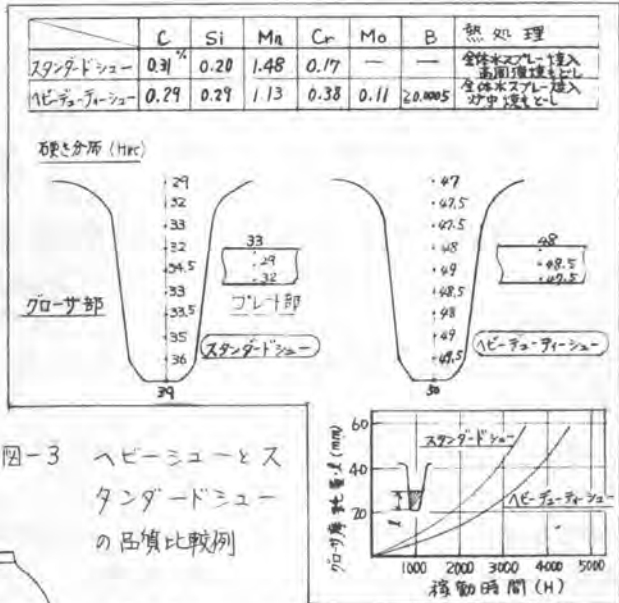 C Si Mn Cr Mo B 熱処理
スタンダードシュー 0.31% 0.20 1.48 0.17 — — 全体水スプレー焼入 高周波焼もどし
ヘビーデューティーシュー 0.29 0.29 1.13 0.38 0.11 ≧0.0005 全体水スプレー焼入 炉中焼もどし
硬さ分布 (HRC)
29
32
33
32
34.5
33
33.5
35
36
39
33
29
32
グローサ部
プレート部
スタンダードシュー
47
47.5
47.5
48
49
48.5
48
49
49.5
50
48
48.5
47.5
ヘビーデューティーシュー
図-3 ヘビーシューとス
タンダードシュー
の品質比較例
グローサ摩耗量 l (mm)
60
40
20
スタンダードシュー
ヘビーデューティーシュー
l
1000 2000 3000 4000 5000
稼動時間 (H)